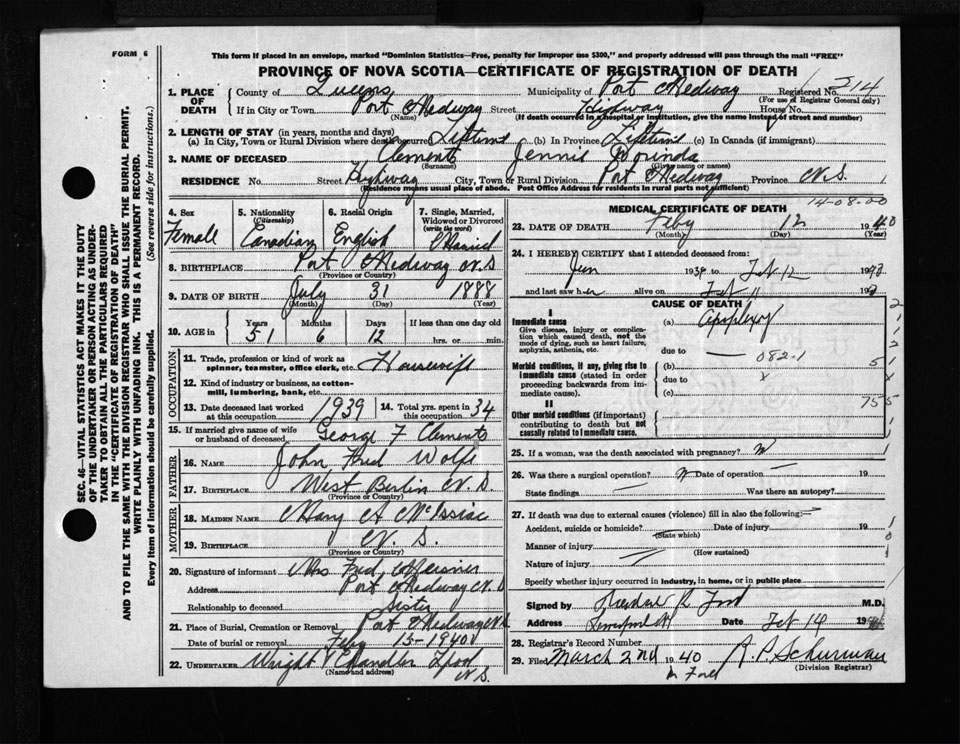 FORM 6
This form if placed in an envelope, marked "Dominion Statistics—Free, penalty for improper use $300," and properly addressed will pass through the mail "FREE"
PROVINCE OF NOVA SCOTIA—CERTIFICATE OF REGISTRATION OF DEATH
SEC. 46—VITAL STATISTICS ACT MAKES IT THE DUTY
OF THE UNDERTAKER OR PERSON ACTING AS UNDER-
TAKER TO OBTAIN ALL THE PARTICULARS REQUIRED
IN THE "CERTIFICATE OF REGISTRATION OF DEATH"
AND TO FILE THE SAME WITH THE DIVISION REGISTRAR WHO SHALL ISSUE THE BURIAL PERMIT.
WRITE PLAINLY WITH UNFADING INK. THIS IS A PERMANENT RECORD.
Every item of information should be carefully supplied. (See reverse side for instructions.)
1. PLACE OF DEATH County of Queens Municipality of Port Medway Registered No. 214
(For use of Registrar General only)
If in City or Town Port Medway Street Highway House No.
(Name) (If death occurred in a hospital or institution, give the name instead of street and number)
2. LENGTH OF STAY (in years, months and days)
(a) In City, Town or Rural Division where death occurred Lifetime (b) In Province Lifetime (c) In Canada (if immigrant)
3. NAME OF DECEASED Clements Jennie Dorinda
(Surname) (Given name or names)
RESIDENCE No. Street Highway City, Town or Rural Division Port Medway Province N.S.
(Residence means usual place of abode. Post Office Address for residents in rural parts not sufficient)
14-08-00
4. Sex Female
5. Nationality (Citizenship) Canadian
6. Racial Origin English
7. Single, Married, Widowed or Divorced (write the word) Married
8. BIRTHPLACE Port Medway N.S
(Province or Country)
9. DATE OF BIRTH July 31 1888
(Month) (Day) (Year)
10. AGE in Years 51 Months 6 Days 12 If less than one day old hrs. or min.
OCCUPATION
11. Trade, profession or kind of work as spinner, teamster, office clerk, etc. Housewife
12. Kind of industry or business, as cotton-mill, lumbering, bank, etc.
13. Date deceased last worked at this occupation 1939 14. Total yrs. spent in this occupation 34
15. If married give name of wife or husband of deceased George F Clements
FATHER
16. NAME John Fred Wolfe
17. BIRTHPLACE West Berlin N.S.
(Province or Country)
MOTHER
18. MAIDEN NAME Mary A McIssiac
19. BIRTHPLACE N.S.
(Province or Country)
20. Signature of informant Mrs Fred Meisner
Address Port Medway N.S
Relationship to deceased Sister
21. Place of Burial, Cremation or Removal Port Medway N.S.
Date of burial or removal Feby 15-1940
22. UNDERTAKER Wright Chandler Lpool N.S.
(Name and address)
MEDICAL CERTIFICATE OF DEATH
23. DATE OF DEATH Feby 12 1940
(Month) (Day) (Year)
24. I HEREBY CERTIFY that I attended deceased from:
Jun 193 to Feb 12 19
and last saw her alive on Feb 11 19
CAUSE OF DEATH
I
Immediate cause (a) Apoplexy
Give disease, injury or complication which caused death, not the mode of dying, such as heart failure, asphyxia, asthenia, etc.
due to — 082.1
Morbid conditions, if any, giving rise to immediate cause (stated in order proceeding backwards from immediate cause).
(b)
due to x
(c)
II
Other morbid conditions (if important) contributing to death but not causally related to immediate cause.
755
25. If a woman, was the death associated with pregnancy? N
26. Was there a surgical operation? N Date of operation — 19
State findings — Was there an autopsy?
27. If death was due to external causes (violence) fill in also the following:—
Accident, suicide or homicide? Date of injury 19
(State which)
Manner of injury
(How sustained)
Nature of injury
Specify whether injury occurred in industry, in home, or in public place
Signed by R Ford M.D.
Address Liverpool NS Date Feb 14 19
28. Registrar's Record Number
29. Filed March 2nd 1940 R. P. Schurman
(Division Registrar)